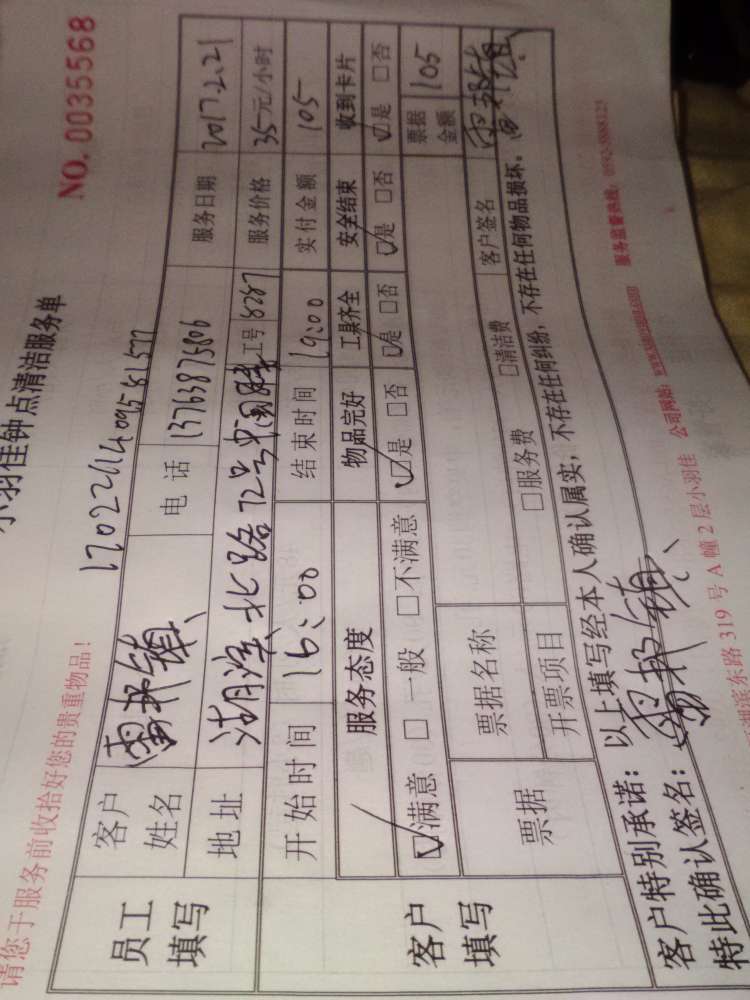 小羽佳钟点清洁服务单
请您于服务前收拾好您的贵重物品!
NO. 0035568
员工填写
客户姓名
电话 13763875806
服务日期 2017.2.21
地址 湖滨北路72号中国
工号 8287
服务价格 35元/小时
客户填写
开始时间 16:00
结束时间 19:00
实付金额 105
服务态度 物品完好 工具齐全 安全结束 收到卡片
☑满意 □一般 □不满意 ☑是 □否 ☑是 □否 ☑是 □否 ☑是 □否
票据 票据名称
票据金额 105
开票项目 □服务费 □清洁费 客户签名
客户特别承诺: 以上填写经本人确认属实, 不存在任何纠纷, 不存在任何物品损坏。
特此确认签名:
湖滨东路 319 号 A 幢 2 层小羽佳 公司网站: 服务监督热线: